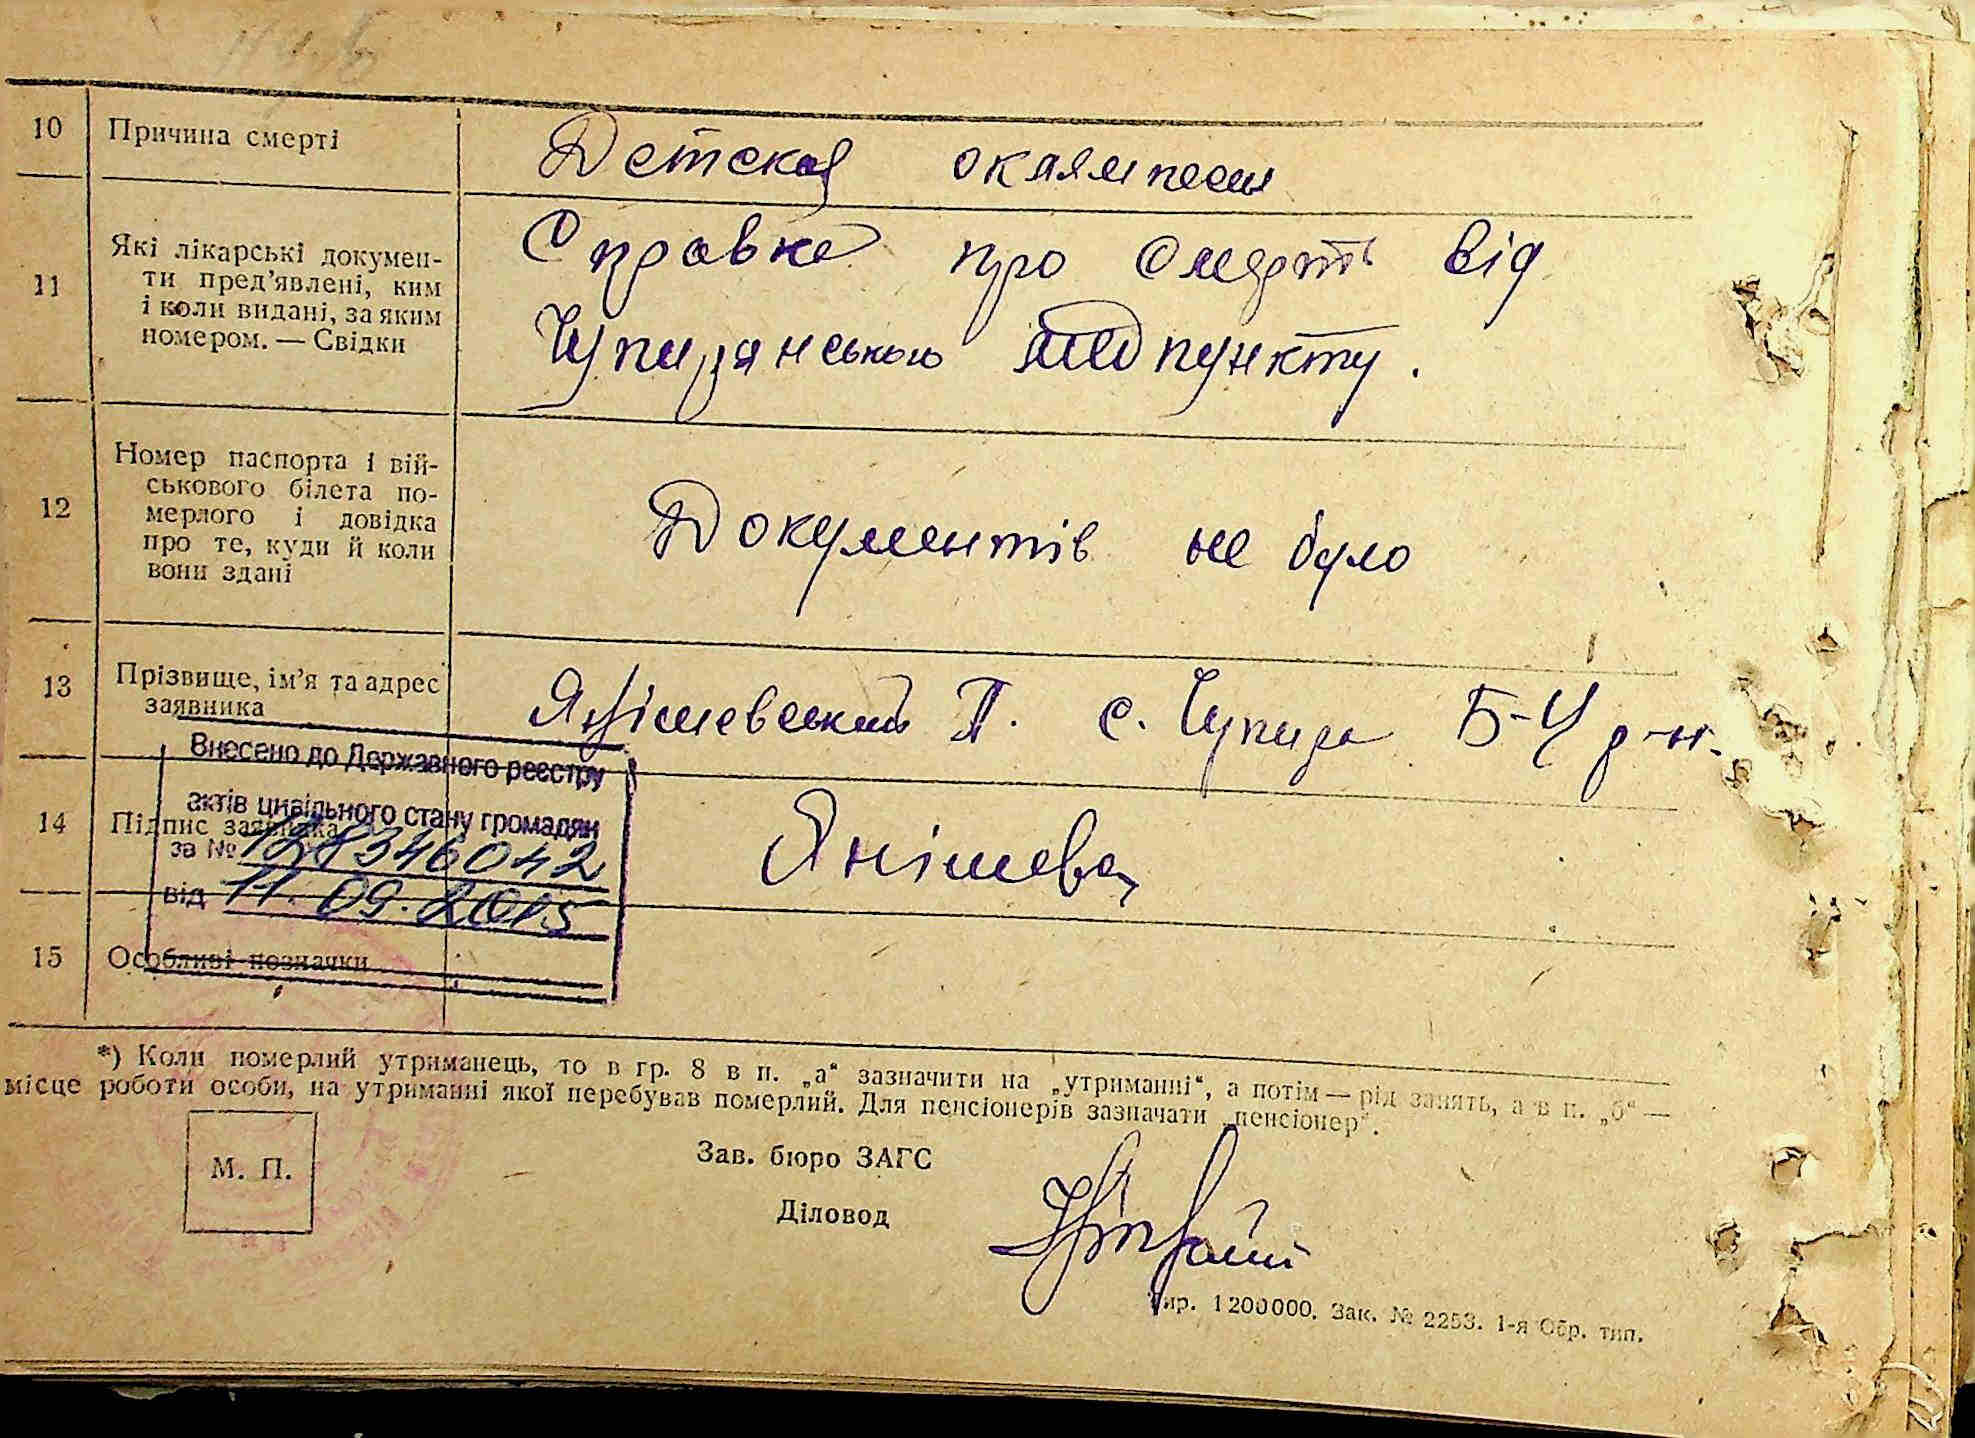 10 Причина смерті Детская оклампсия
11 Які лікарські докумен-
ти пред'явлені, ким
і коли видані, за яким
номером. — Свідки
Справка про смерть від
Чупирянського медпункту.
12 Номер паспорта і вій-
ськового білета по-
мерлого і довідка
про те, куди й коли
вони здані
Документів не було
13 Прізвище, ім'я та адрес
заявника
Янішевський П. с. Чупира Б-Ц р-н.
Внесено до Державного реєстру
актів цивільного стану громадян
за № 128346042
від 11.09.2015
14 Підпис заявника Янішевс
15 Особливі позначки
*) Коли померлий утриманець, то в гр. 8 в п. „а“ зазначити на „утриманні“, а потім — рід занять, а в п. „б“ —
місце роботи особи, на утриманні якої перебував померлий. Для пенсіонерів зазначати „пенсіонер“.
М. П.
Зав. бюро ЗАГС
Діловод
Тир. 1200000. Зак. № 2253. 1-я Обр. тип.